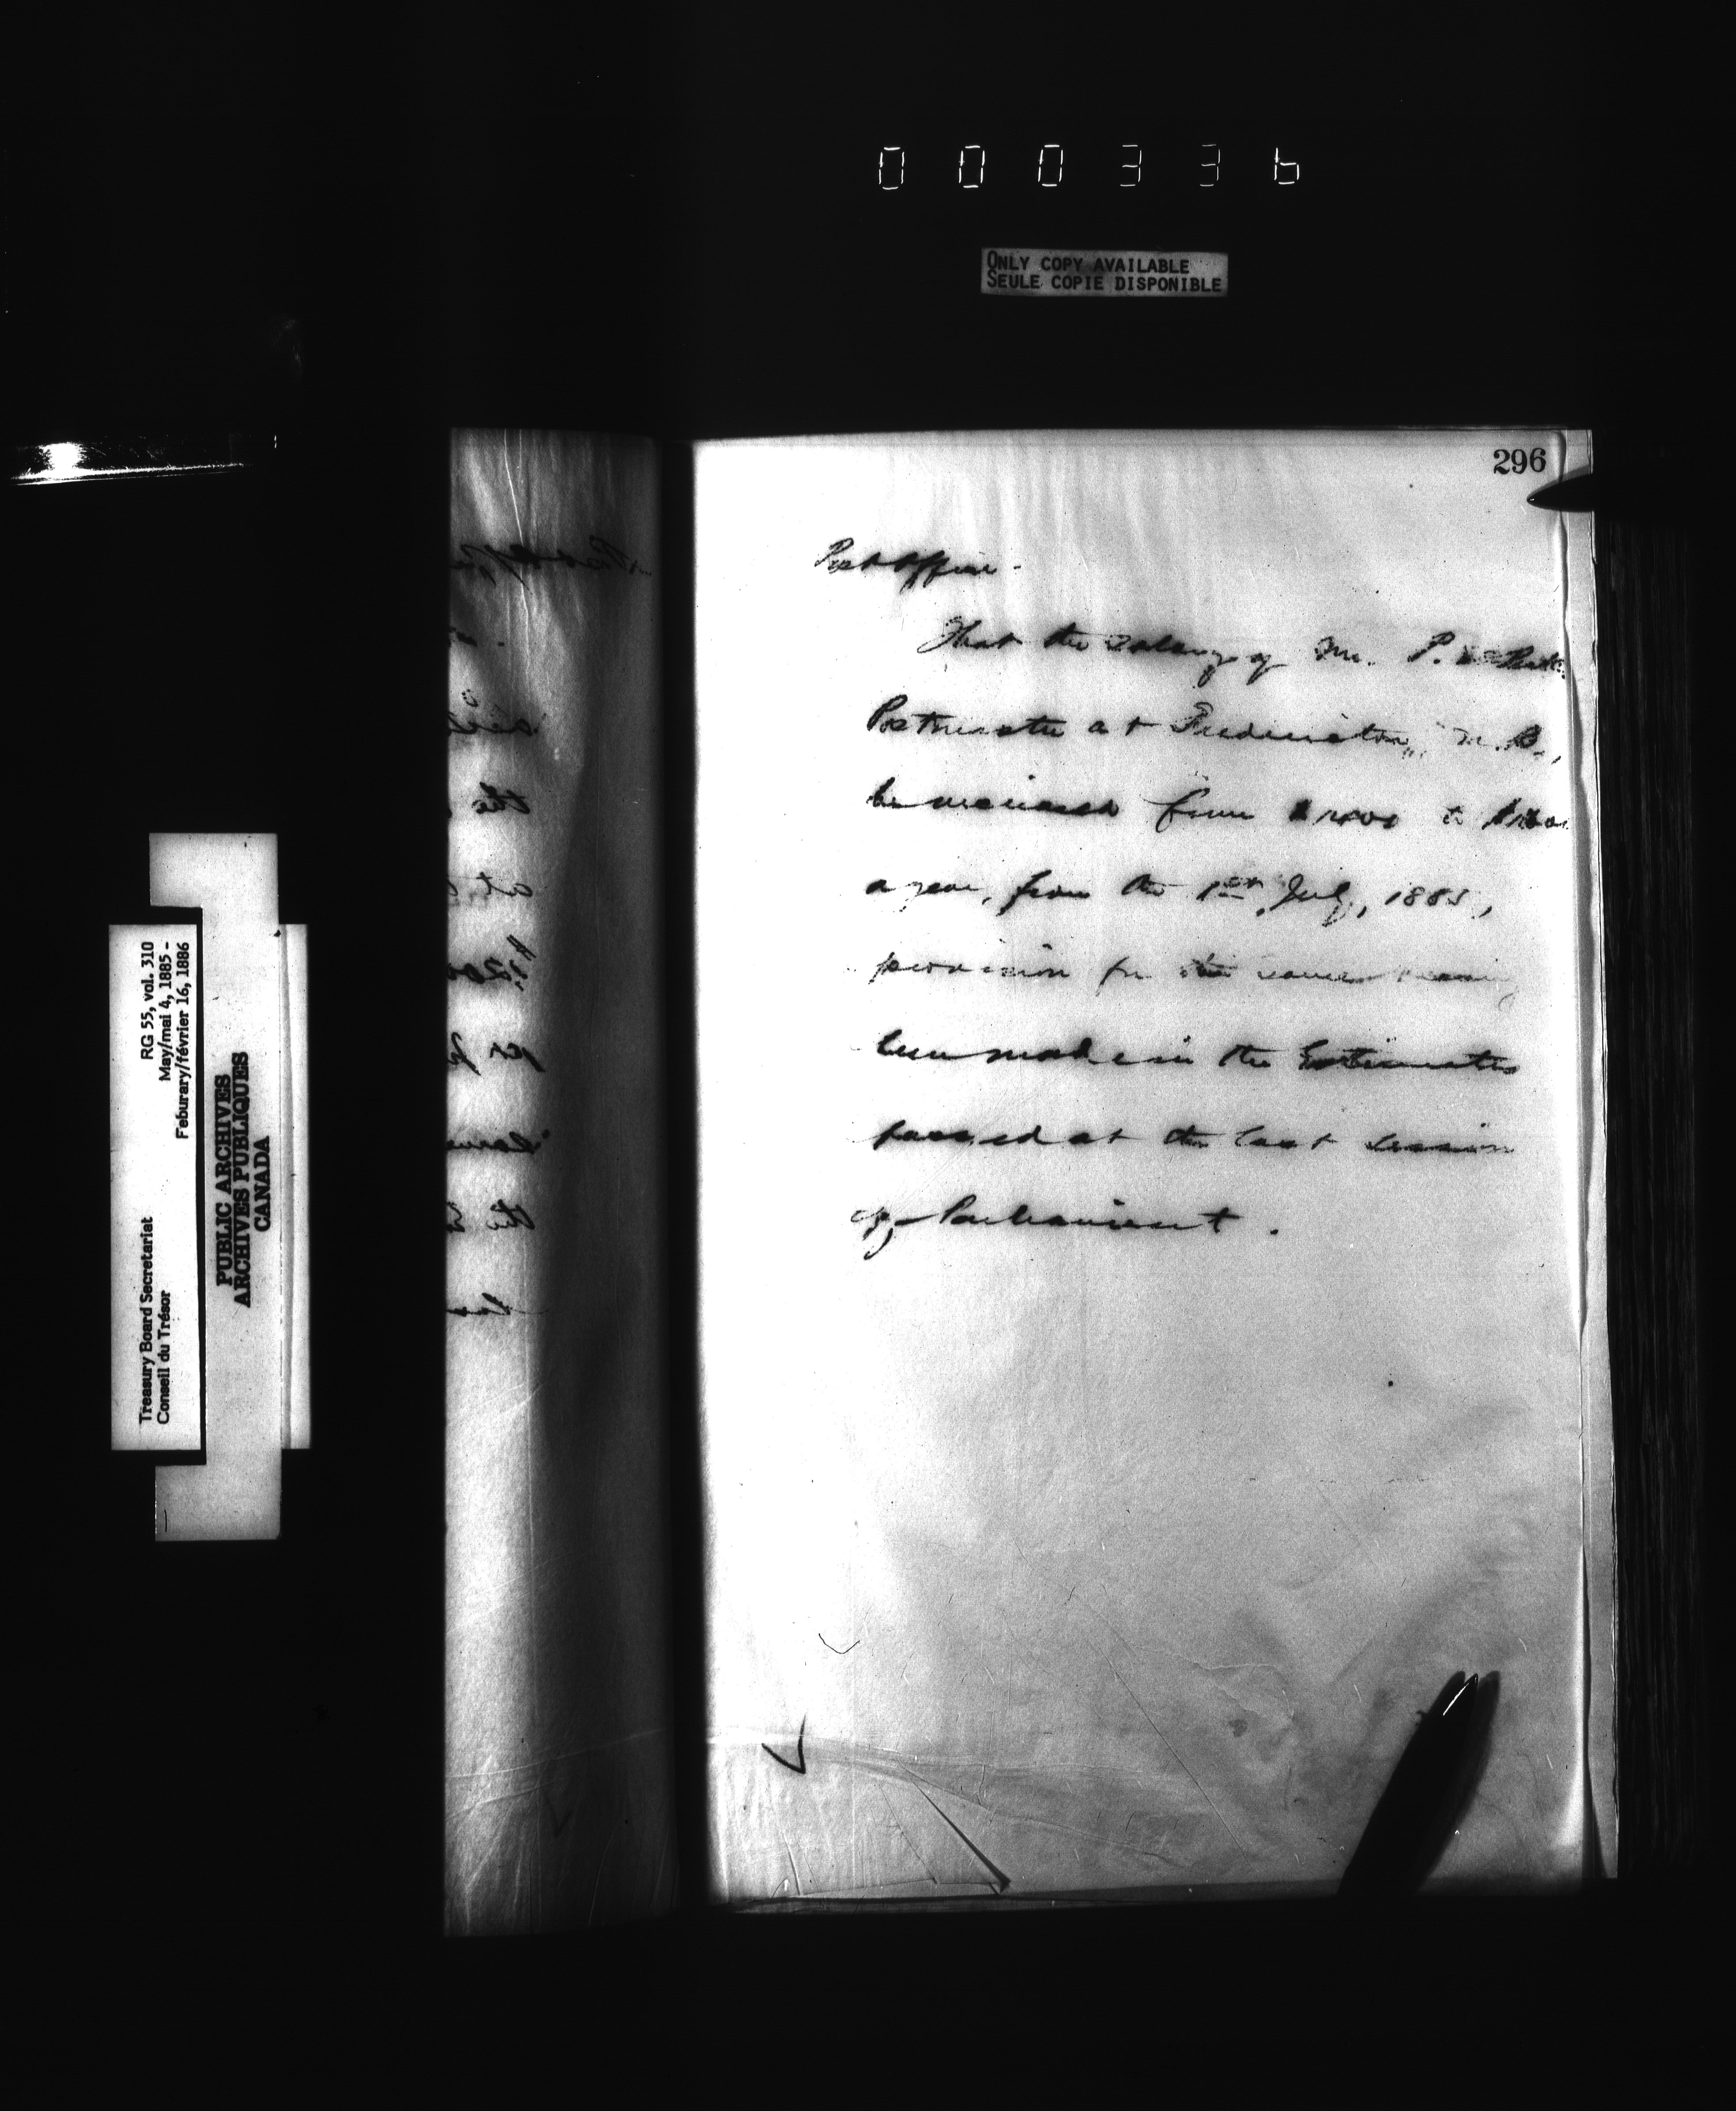 000336
ONLY COPY AVAILABLE
SEULE COPIE DISPONIBLE
296
Post Office.
That the salary of Mr. P.
Postmaster at Fredericton, N.B.,
be increased from $1400 to
a year, from the 1st July, 1885,
provision for the same having
been made in the Estimates
passed at the last session
of Parliament.
RG 55, vol. 310
May/mai 4, 1885 -
Feburary/février 16, 1886
Treasury Board Secretariat
Conseil du Trésor
PUBLIC ARCHIVES
ARCHIVES PUBLIQUES
CANADA